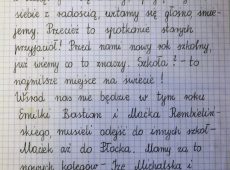 siebie z radością, witamy się głośno, śmie-
jemy. Przecież to spotkanie starych
przyjaciół! Przed nami nowy rok szkolny,
już wiemy co to znaczy. Szkoła? - to
najmilsze miejsce na świecie!
Wśród nas nie będzie w tym roku
Emilki Bastian i Maćka Rembieliń-
skiego, musieli odejść do innych szkół -
Maciek aż do Płocka. Mamy za to
nowych kolegów - Izę Michalską i